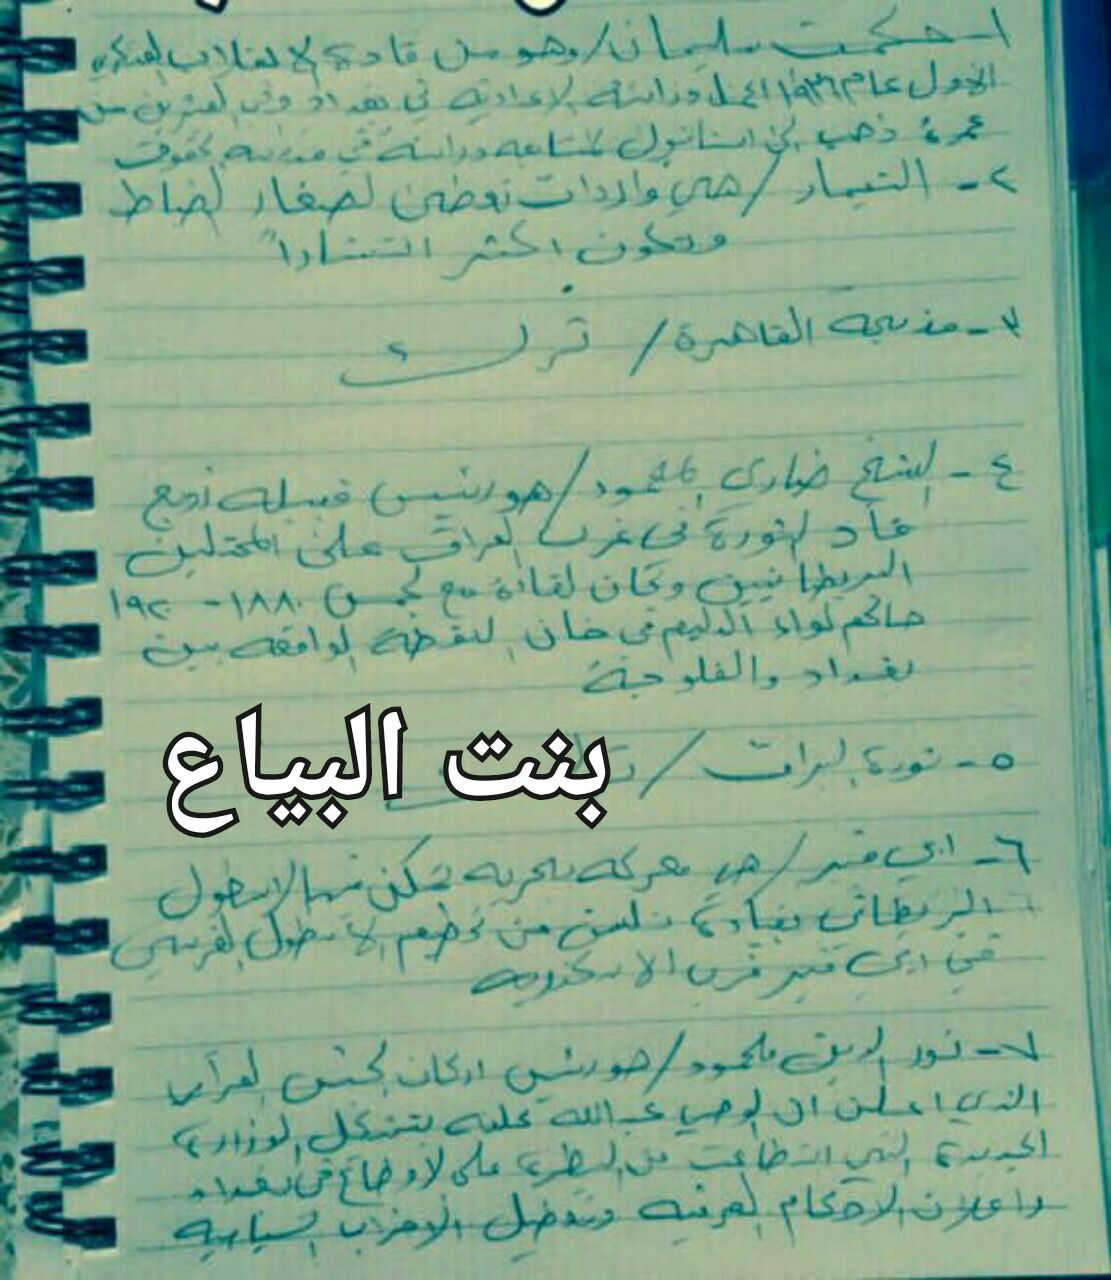 ١- حكمت سليمان/ وهو من قادة الانقلاب العسكري
الاول عام ١٩٣٦ اكمل دراسته الاعدادية في بغداد وفي العشرين من
عمره ذهب الى اسطنبول لمتابعة دراسته في مدرسة الحقوق
٢- التيمار/ هي واردات تعطى لصغار الضباط
وتكون اكثر انتشاراً
٣- مذبحة القاهرة/ ترك
٤- الشيخ ضاري المحمود/ هو رئيس قبيلة زوبع
قاد الثورة في غرب العراق على المحتلين
البريطانيين وكان لقاءه مع لجمن ١٨٨٠-١٩٢٠
حاكم لواء الدليم في خان النقطة الواقعة بين
بغداد والفلوجة
٥- ثورة البراق/
بنت البياع
٦- ابي قير/ هي معركة بحرية تمكن فيها الاسطول
البريطاني بقيادة نلسن من تحطيم الاسطول الفرنسي
في ابي قير قرب الاسكندرية
٧- نور الدين محمود/ هو رئيس اركان الجيش العراقي
الذي اعلن ان الوصي عبدالله عليه بتشكيل الوزارة
الجديدة التي استطاعت من السيطرة على الاوضاع في بغداد
واعلان الاحكام العرفية وتعطيل الاحزاب السياسية